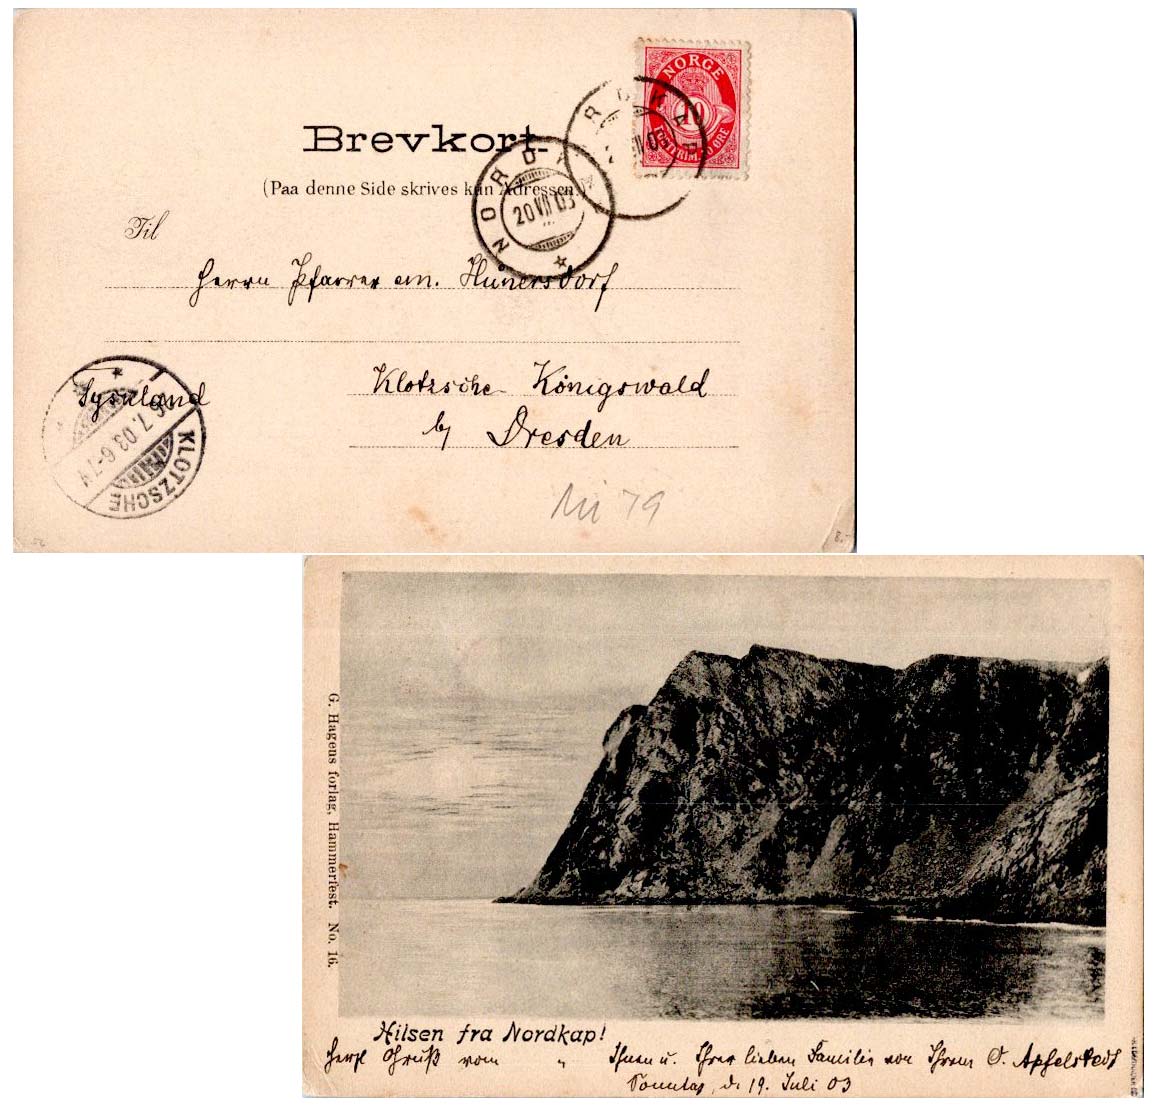 NORGE
10
Brevkort.
(Paa denne Side skrives kun Adressen.)
NORDKAP
20 VII 03
Til
Herrn Pfarrer em. Hünersdorf
Klotzsche Königswald
b/ Dresden
KLOTZSCHE
7. 03. 6-7 N
Mi 79
G. Hagens forlag, Hammerfest. No. 16.
Hilsen fra Nordkap!
Herzl Gruß vom " Ihnen u. Ihrer lieben Familie von Ihrem O. Apfelstedt
Sonntag, d. 19. Juli 03